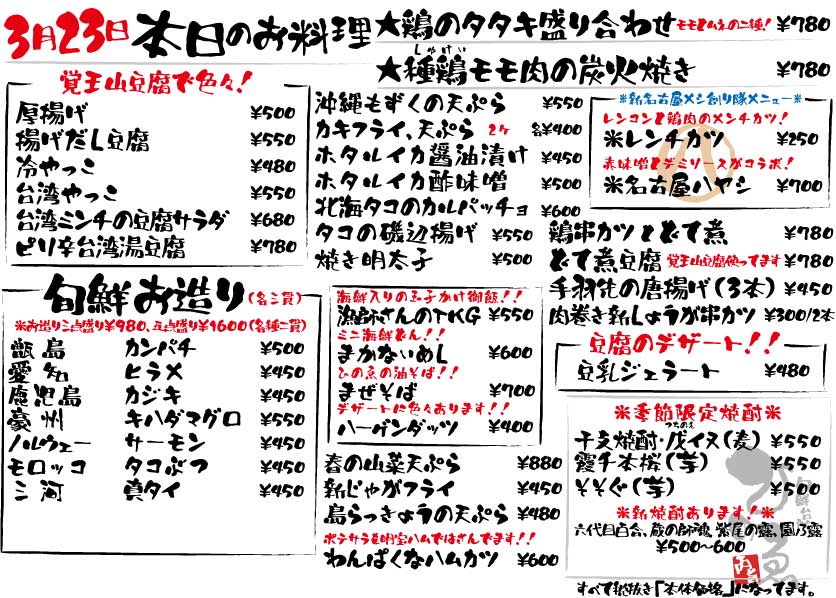 3月23日 本日のお料理
★鶏のタタキ盛り合わせ モモとムネの二種! ¥780
しゃけい
★種鶏モモ肉の炭火焼き ¥780
覚王山豆腐で色々!
厚揚げ ¥500
揚げだし豆腐 ¥550
冷やっこ ¥480
台湾やっこ ¥550
台湾ミンチの豆腐サラダ ¥680
ピリ辛台湾湯豆腐 ¥780
旬鮮お造り(各三貫)
※お造り三点盛り¥980、五点盛り¥1600(各種二貫)
甑島 カンパチ ¥500
愛知 ヒラメ ¥450
鹿児島 カジキ ¥450
豪州 キハダマグロ ¥550
ノルウェー サーモン ¥450
モロッコ タコぶつ ¥450
三河 真タイ ¥450
沖縄もずくの天ぷら ¥550
カキフライ、天ぷら 2ケ 各¥400
ホタルイカ醤油漬け ¥450
ホタルイカ酢味噌 ¥500
北海タコのカルパッチョ ¥600
タコの磯辺揚げ ¥550
焼き明太子 ¥500
海鮮入りの玉子かけ御飯!!
漁師さんのTKG ¥550
ミニ海鮮どん!!
まかないめし ¥600
ひの魚の油そば!!
まぜそば ¥700
デザートに色々あります!!
ハーゲンダッツ ¥400
春の山菜天ぷら ¥880
新じゃがフライ ¥450
島らっきょうの天ぷら ¥480
ポテサラを明宝ハムではさんでます!!
わんぱくなハムカツ ¥600
※新名古屋メシ創り隊メニュー※
レンコンと鶏肉のメンチカツ!
※レンチカツ ¥250
赤味噌とデミソースがコラボ!
※名古屋ハヤシ ¥700
鶏串カツとどて煮 ¥780
どて煮豆腐 覚王山豆腐使ってます ¥780
手羽先の唐揚げ(3本) ¥450
肉巻き新しょうが串カツ ¥300/2本
豆腐のデザート!!
豆乳ジェラート ¥480
※季節限定焼酎※
つちのえ
干支焼酎・戊イヌ(麦) ¥550
霞千本桜(芋) ¥550
そそぐ(芋) ¥500
※新焼酎あります!※
六代目百合、蔵の師魂、紫尾の露、園乃露
¥500〜600
すべて税抜き「本体価格」になってます。